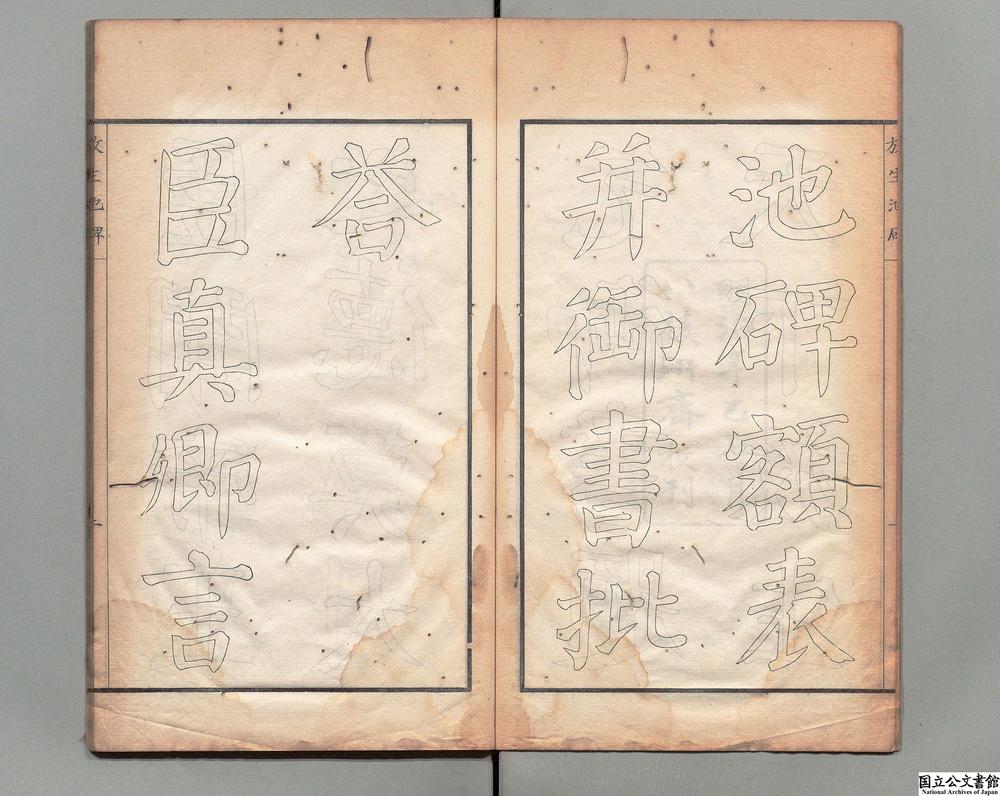 池碑額表
并御書批
荅
臣真卿言
放生池碑
国立公文書館
National Archives of Japan